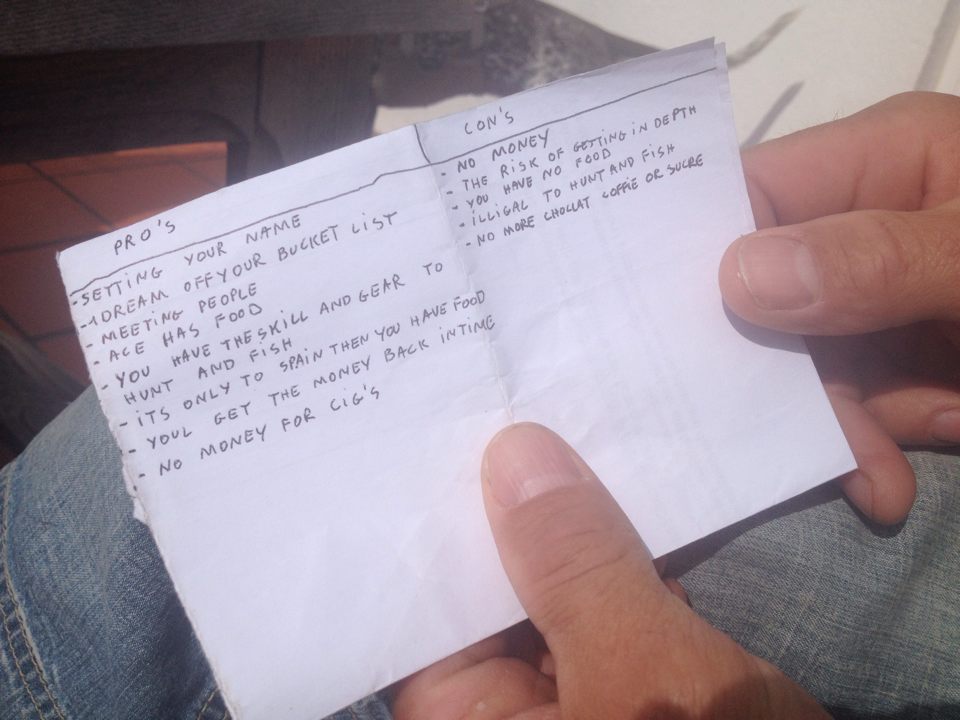 PRO'S
- SETTING YOUR NAME
- 1 DREAM OFF YOUR BUCKET LIST
- MEETING PEOPLE
- ACE HAS FOOD
- YOU HAVE THE SKILL AND GEAR TO
HUNT AND FISH
- iTS ONLY TO SPAIN THEN YOU HAVE FOOD
- YOUL GET THE MONEY BACK IN TIME
- NO MONEY FOR CIG'S
CON'S
- NO MONEY
- THE RISK OF GETTING IN DEPTH
- YOU HAVE NO FOOD
- ILLIGAL TO HUNT AND FISH
- NO MORE CHOLLAT COFFIE OR SUCRE